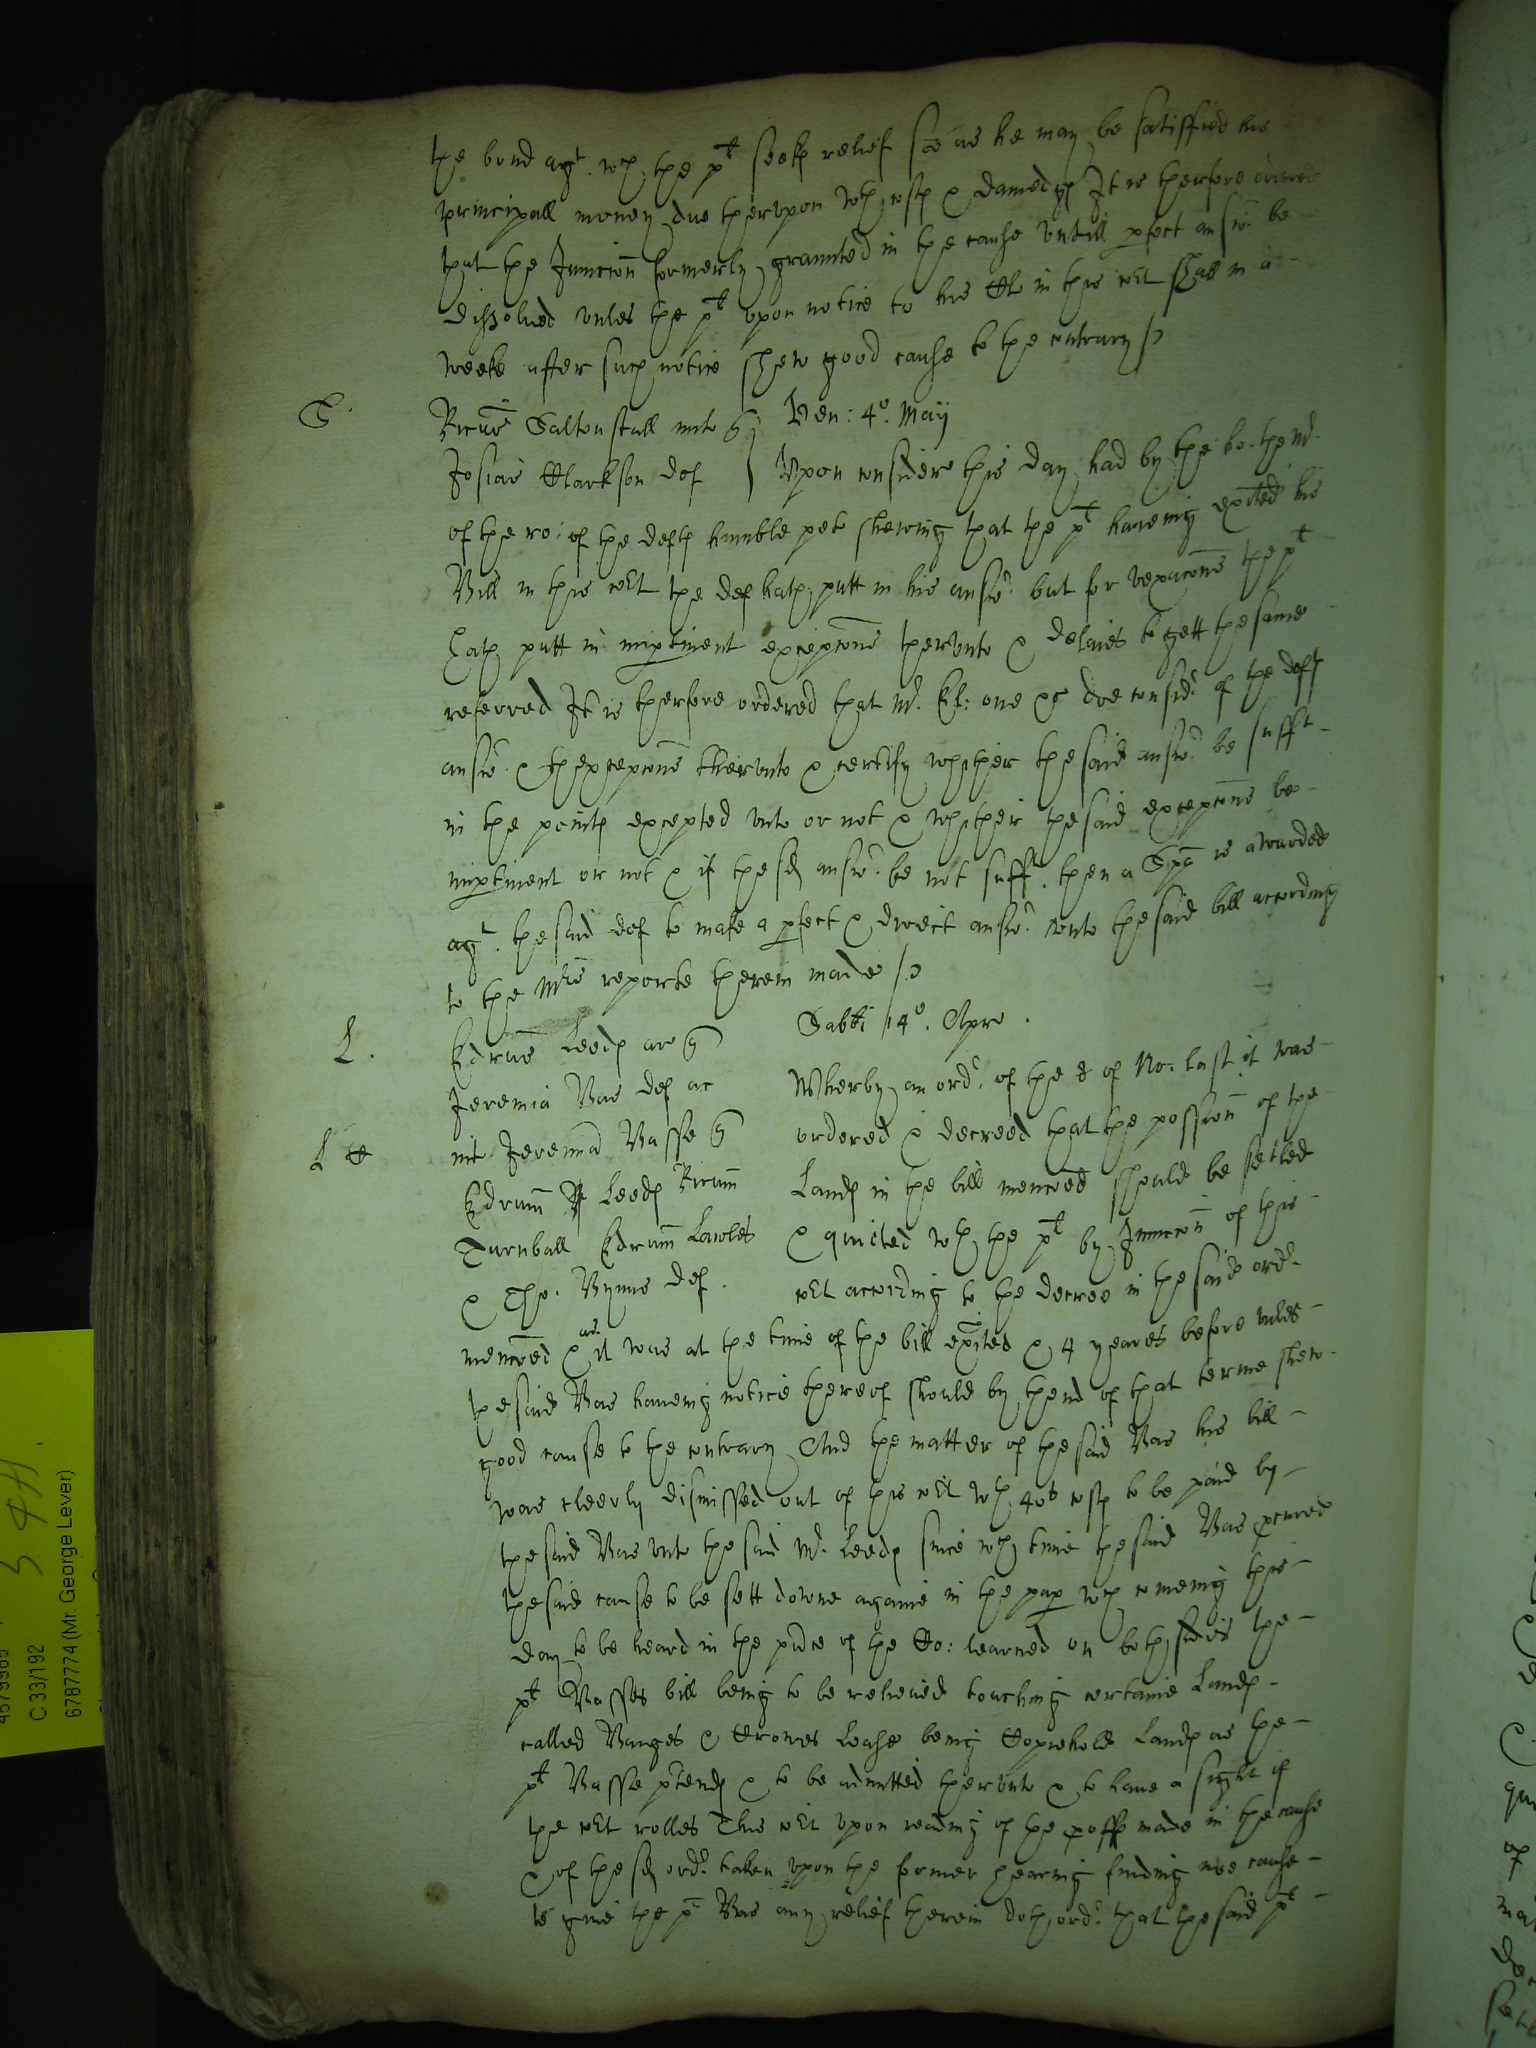 the bond agt. wch the plt seekes relief soe as he may be satisffied his
principall money due therupon wth costs & damages It is therfore ordered
that the Iniunccon formerly graunted in the cause untill pfect answr. be
dissolued unles the plt upon notice to his Clo in this cort shall in a
weeke after such notice shew good cause to the contrary /
S.
Ricus Saltonstall quer
Ven: 4o. May
Josias Clarkson def
Upon consideracon this day had by the ho. the Mr.
of the ro: of the defts humble peto shewing that the plt haueing exited his
Bill in this cort the def hath putt in his answr. but for vexacons the plt
hath putt in imptinent excepcons therunto & delaies to gett the same
referred It is therfore ordered that Mr. one &c doe considr. of the defts
answr. & thexcepcons therunto & certify whither the said answr. be sufft
in the points excepted unto or not & whither the said excepcons be
imptinent or not & if the sd answr. be not sufft. then a Spa is awarded
agt. the said def to make a pfect & direct answr. unto the said bill according
to the Mrs reporte therein made /
Sabti 14o. Apr
L.
Edrus Leeds ar quer
Jeremia Bas def ac
Wherby an ordr. of the 8 of No. last it was
L &
int Jeremia Basse quer
ordered & decreed that the possion of the
Edrum Leeds Ricum
Lands in the bill menconed should be setled
Turnball Edrum Lawles
& quieted wth the plt by Iniunccon of this
& Tho. Bynns def.
cort according to the decree in the said ordr.
menconed & as it was at the time of the bill exited & 4 yeares before unles
the said Bas haueing notice thereof should by thend of that terme shew
good cause to the contrary And the matter of the said Bas his bill
was cleerly dismissed out of this cort wth 40s costs to be paid by
the said Bas unto the said Mr. Leeds since wch time the said Bas pcured
the said cause to be sett downe againe in the pap wch comeing this
day to be heard in the pnce of the Co: learned on both sides the
plt Basses bill being to be releiued touching certaine Lands
called Banges & Crowes Lease being Copiehold Lands as the
plt Basse ptends & to be admitted therunto & to haue a sight if
the cort rolles This cort upon reading of the pofs made in the cause
& of the sd ordr. taken upon the former hearing finding noe cause
to giue the plt Bas any relief therein doth ordr. that the said plt
C 33/192
6787774 (Mr. George Lever)